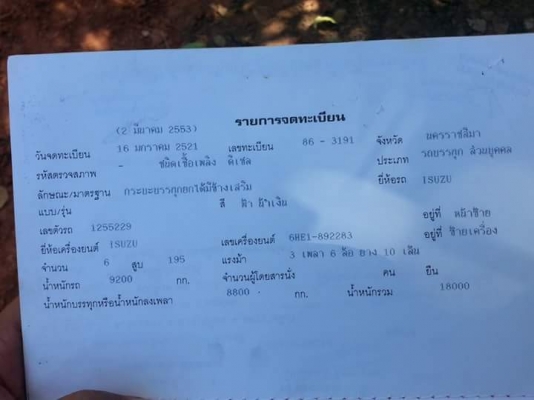 รายการจดทะเบียน
(2 มีนาคม 2553)
วันจดทะเบียน 16 มกราคม 2521 เลขทะเบียน 86 - 3191 จังหวัด นครราชสีมา
รหัสตรวจสภาพ - ชนิดเชื้อเพลิง ดีเซล ประเภท รถบรรทุก ส่วนบุคคล
ลักษณะ/มาตรฐาน กระบะบรรทุกยกได้มีข้างเสริม ยี่ห้อรถ ISUZU
แบบ/รุ่น สี ฟ้า น้ำเงิน
เลขตัวรถ 1255229 อยู่ที่ หน้าซ้าย
ยี่ห้อเครื่องยนต์ ISUZU เลขเครื่องยนต์ 6HE1-892283 อยู่ที่ ซ้ายเครื่อง
จำนวน 6 สูบ 195 แรงม้า 3 เพลา 6 ล้อ ยาง 10 เส้น
น้ำหนักรถ 9200 กก. จำนวนผู้โดยสารนั่ง คน ยืน
น้ำหนักบรรทุกหรือน้ำหนักลงเพลา 8800 กก. น้ำหนักรวม 18000